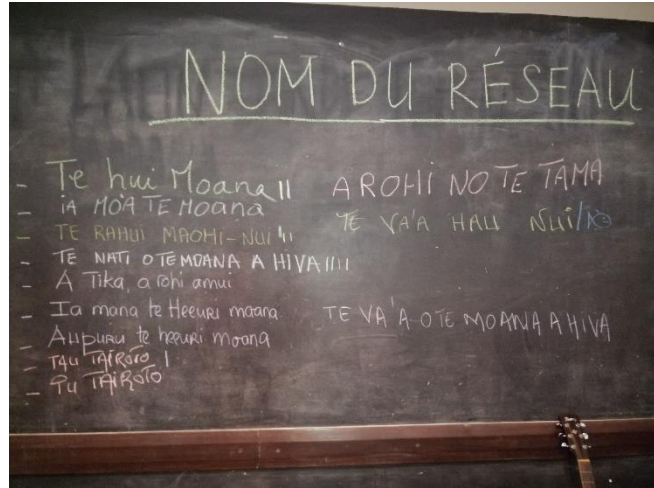 NOM DU RÉSEAU
- Te hui Moana ||
- iA MO'A TE MOANA
- TE RAHUI MAOHI-NUI
- TE NATI O TE MOANA A HIVA ||||
- A Tika, a rohi amui
- Ia mana te Heeuri moana
- Aupuru te heeuri moana
- TAU TAIROTO |
- PU TAIROTO
AROHI NO TE TAMA
TE VA'A HAU NUI
TE VA'A O TE MOANA A HIVA